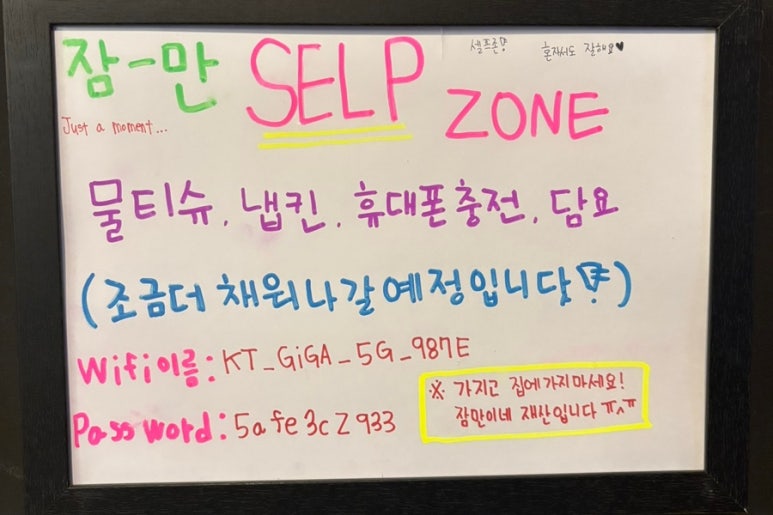 잠-만 SELP ZONE
셀프존
혼자서도 잘해요♥
Just a moment...
물티슈, 냅킨, 휴대폰충전, 담요
(조금더 채워나갈예정입니다)
Wifi이름: KT_GiGA_5G_987E
Password: 5afe3cz933
※ 가지고 집에가지마세요!
잠만이네 재산입니다 ㅠ^ㅠ